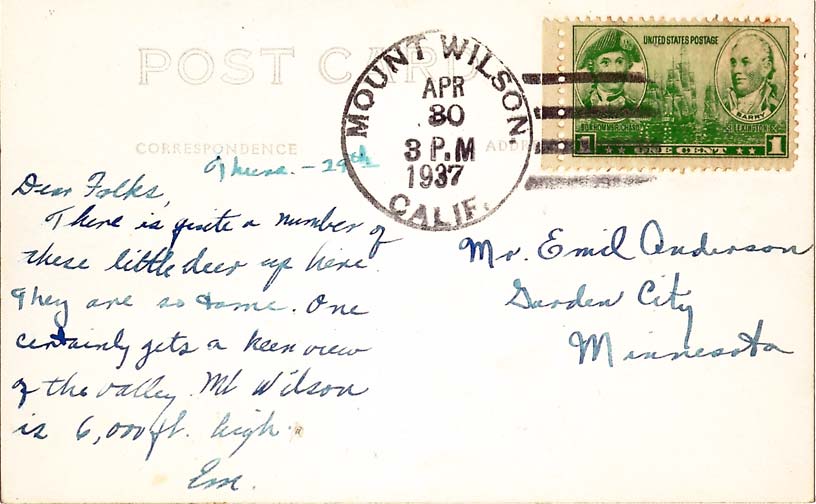 POST CARD
CORRESPONDENCE
ADDRESS
MOUNT WILSON,
APR
30
3 P.M
1937
CALIF.
UNITED STATES POSTAGE
BARRY
1 ONE CENT 1
Thurs. - 29th
Dear Folks,
There is quite a number of
these little deer up here.
They are so tame. One
certainly gets a keen view
of the valley. Mt Wilson
is 6,000 ft. high.
Em.
Mr. Emil Anderson
Garden City
Minnesota